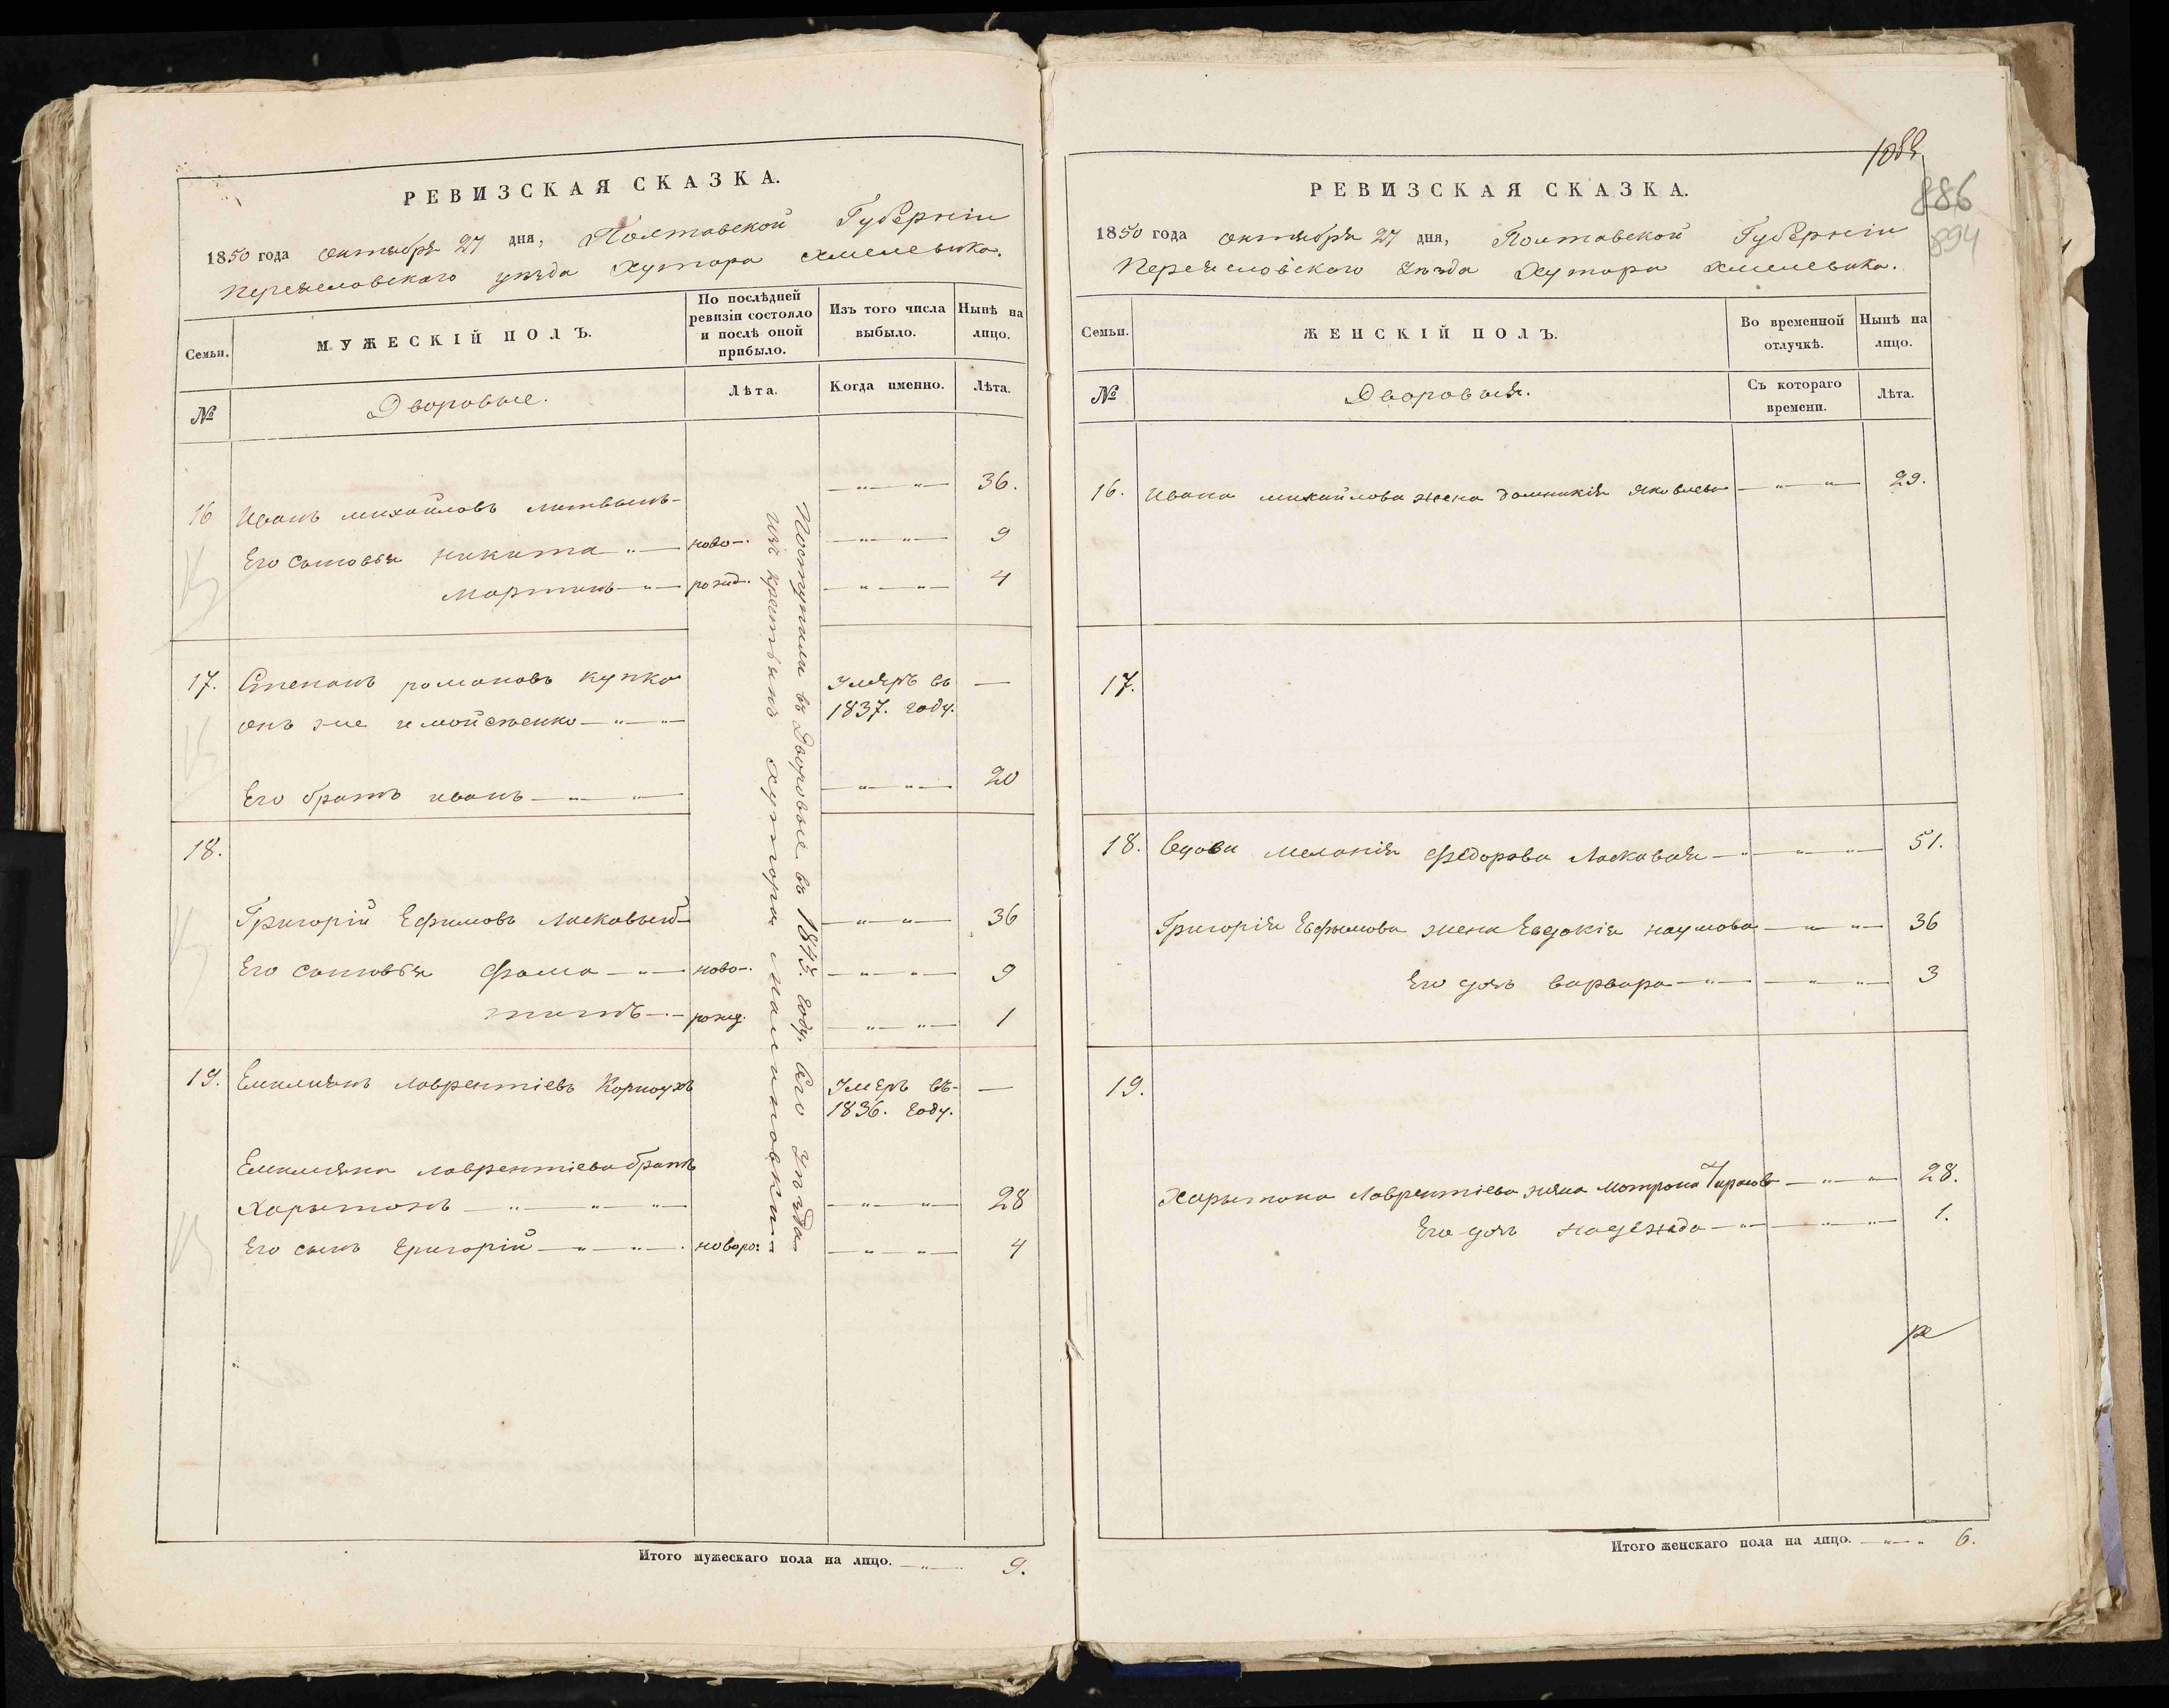 РЕВИЗСКАЯ СКАЗКА.
1850 года октября 27 дня, Полтавской Губерніи
Переясловского уѣзда Хутора Хмелевика.
Семьи.
МУЖЕСКІЙ ПОЛЪ.
По послѣдней ревизіи состояло и послѣ оной прибыло.
Изъ того числа выбыло.
Нынѣ на лицо.
№
Дворовые.
Лѣта.
Когда именно.
Лѣта.
16 Иванъ михайловъ литвинъ 36.
Его сыновья никита ново- 9
мартинъ рожд. 4
17. Степанъ романовъ купка Умеръ въ —
онъ же и мойсженко 1837. году.
Его братъ иванъ 20
18.
Григорій Ефимовъ Ласкавый 36
Его сыновья фома ново- 9
титъ рожд. 1
19. Емилианъ лаврентіевъ Корноухъ Умеръ въ —
1836. году.
Емилиана лаврентіева братъ
Харытонъ 28
Его сынъ григорій новоро: 4
Поступили въ Дворовые въ 1845. году. сего уѣзда
изъ крестьянъ хутора Малиновки
Итого мужескаго пола на лицо. 9.
1088
886
894
РЕВИЗСКАЯ СКАЗКА.
1850 года октября 27 дня, Полтавской Губерніи
Переясловского уѣзда Хутора Хмелевика.
Семьи.
ЖЕНСКІЙ ПОЛЪ.
Во временной отлучкѣ.
Нынѣ на лицо.
№
Дворовыя.
Съ котораго времени.
Лѣта.
16. Ивана михайлова жена домникія яковлева 29.
17.
18. Вдова меланія федорова Ласкавая 51.
Григорія Ефимова жена Евдокія наумова 36
Его дочь варвара 3
19.
Харытона Лаврентіева жена мотрона Тарасова 28.
Его дочь надежда 1.
Итого женскаго пола на лицо. 6.